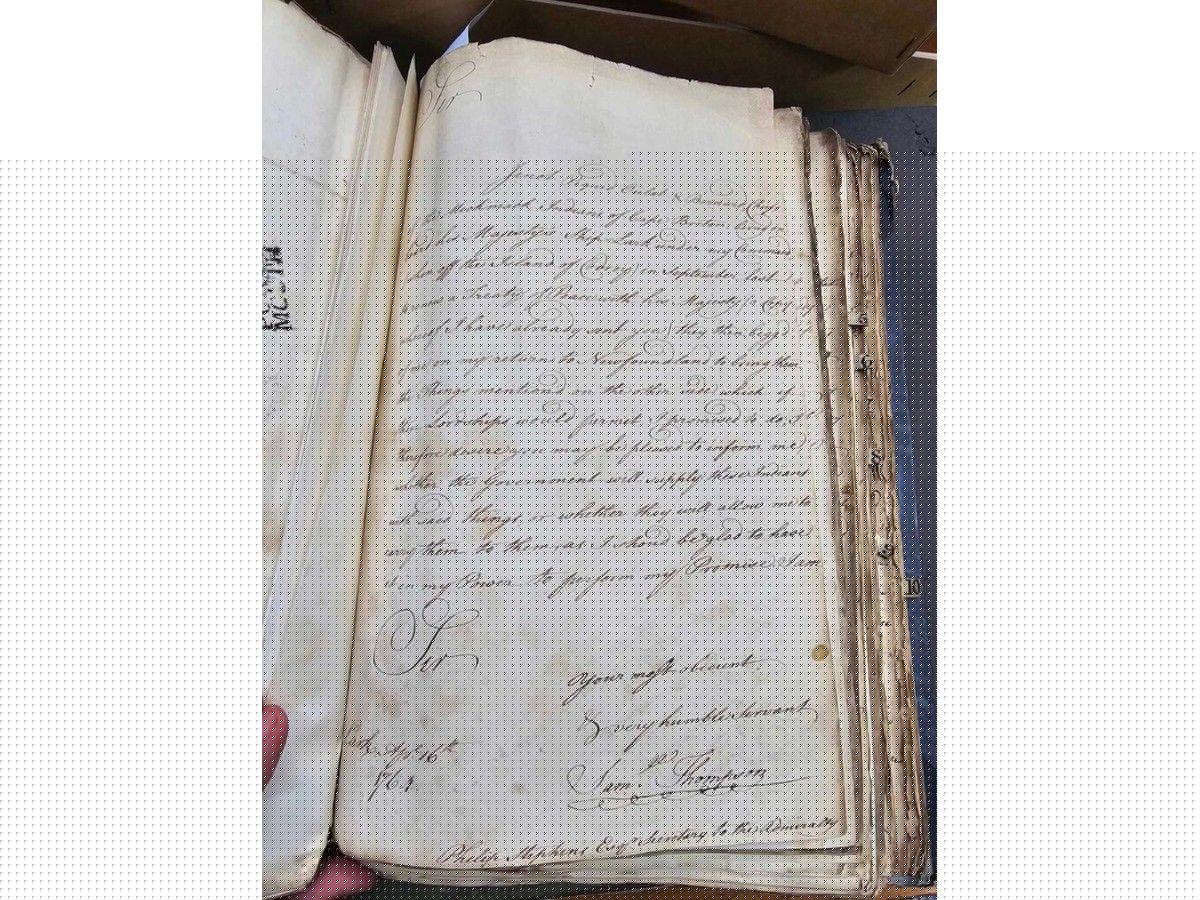 Sir
Janot Piquid Oulat & Bernard Chiefs
of the Meckmack Indians of Cape Breton, being on
board his Majesty's Ship Lark under my Command
when off the Island of Corry in September last
to renew a Treaty of Peace with his Majesty (a Copy
whereof I have already sent you) they then begg'd
of me on my return to Newfoundland to bring them
the Things mention'd on the other side which if
their Lordships would permit I promised to do, I
therefore desire you may be pleased to inform me,
whether the Government will supply these Indians
with said things or whether they will allow me to
carry them to them, as I shou'd be glad to have
it in my Power to perform my Promise. I am
Sir
Your most obedient
& very humble Servant
Sam.^l Thompson
Lark Ap.^l 16^th
1764.
Philip Stephens Esq^r Secretary to the Admiralty
5
6
7
8
9
10